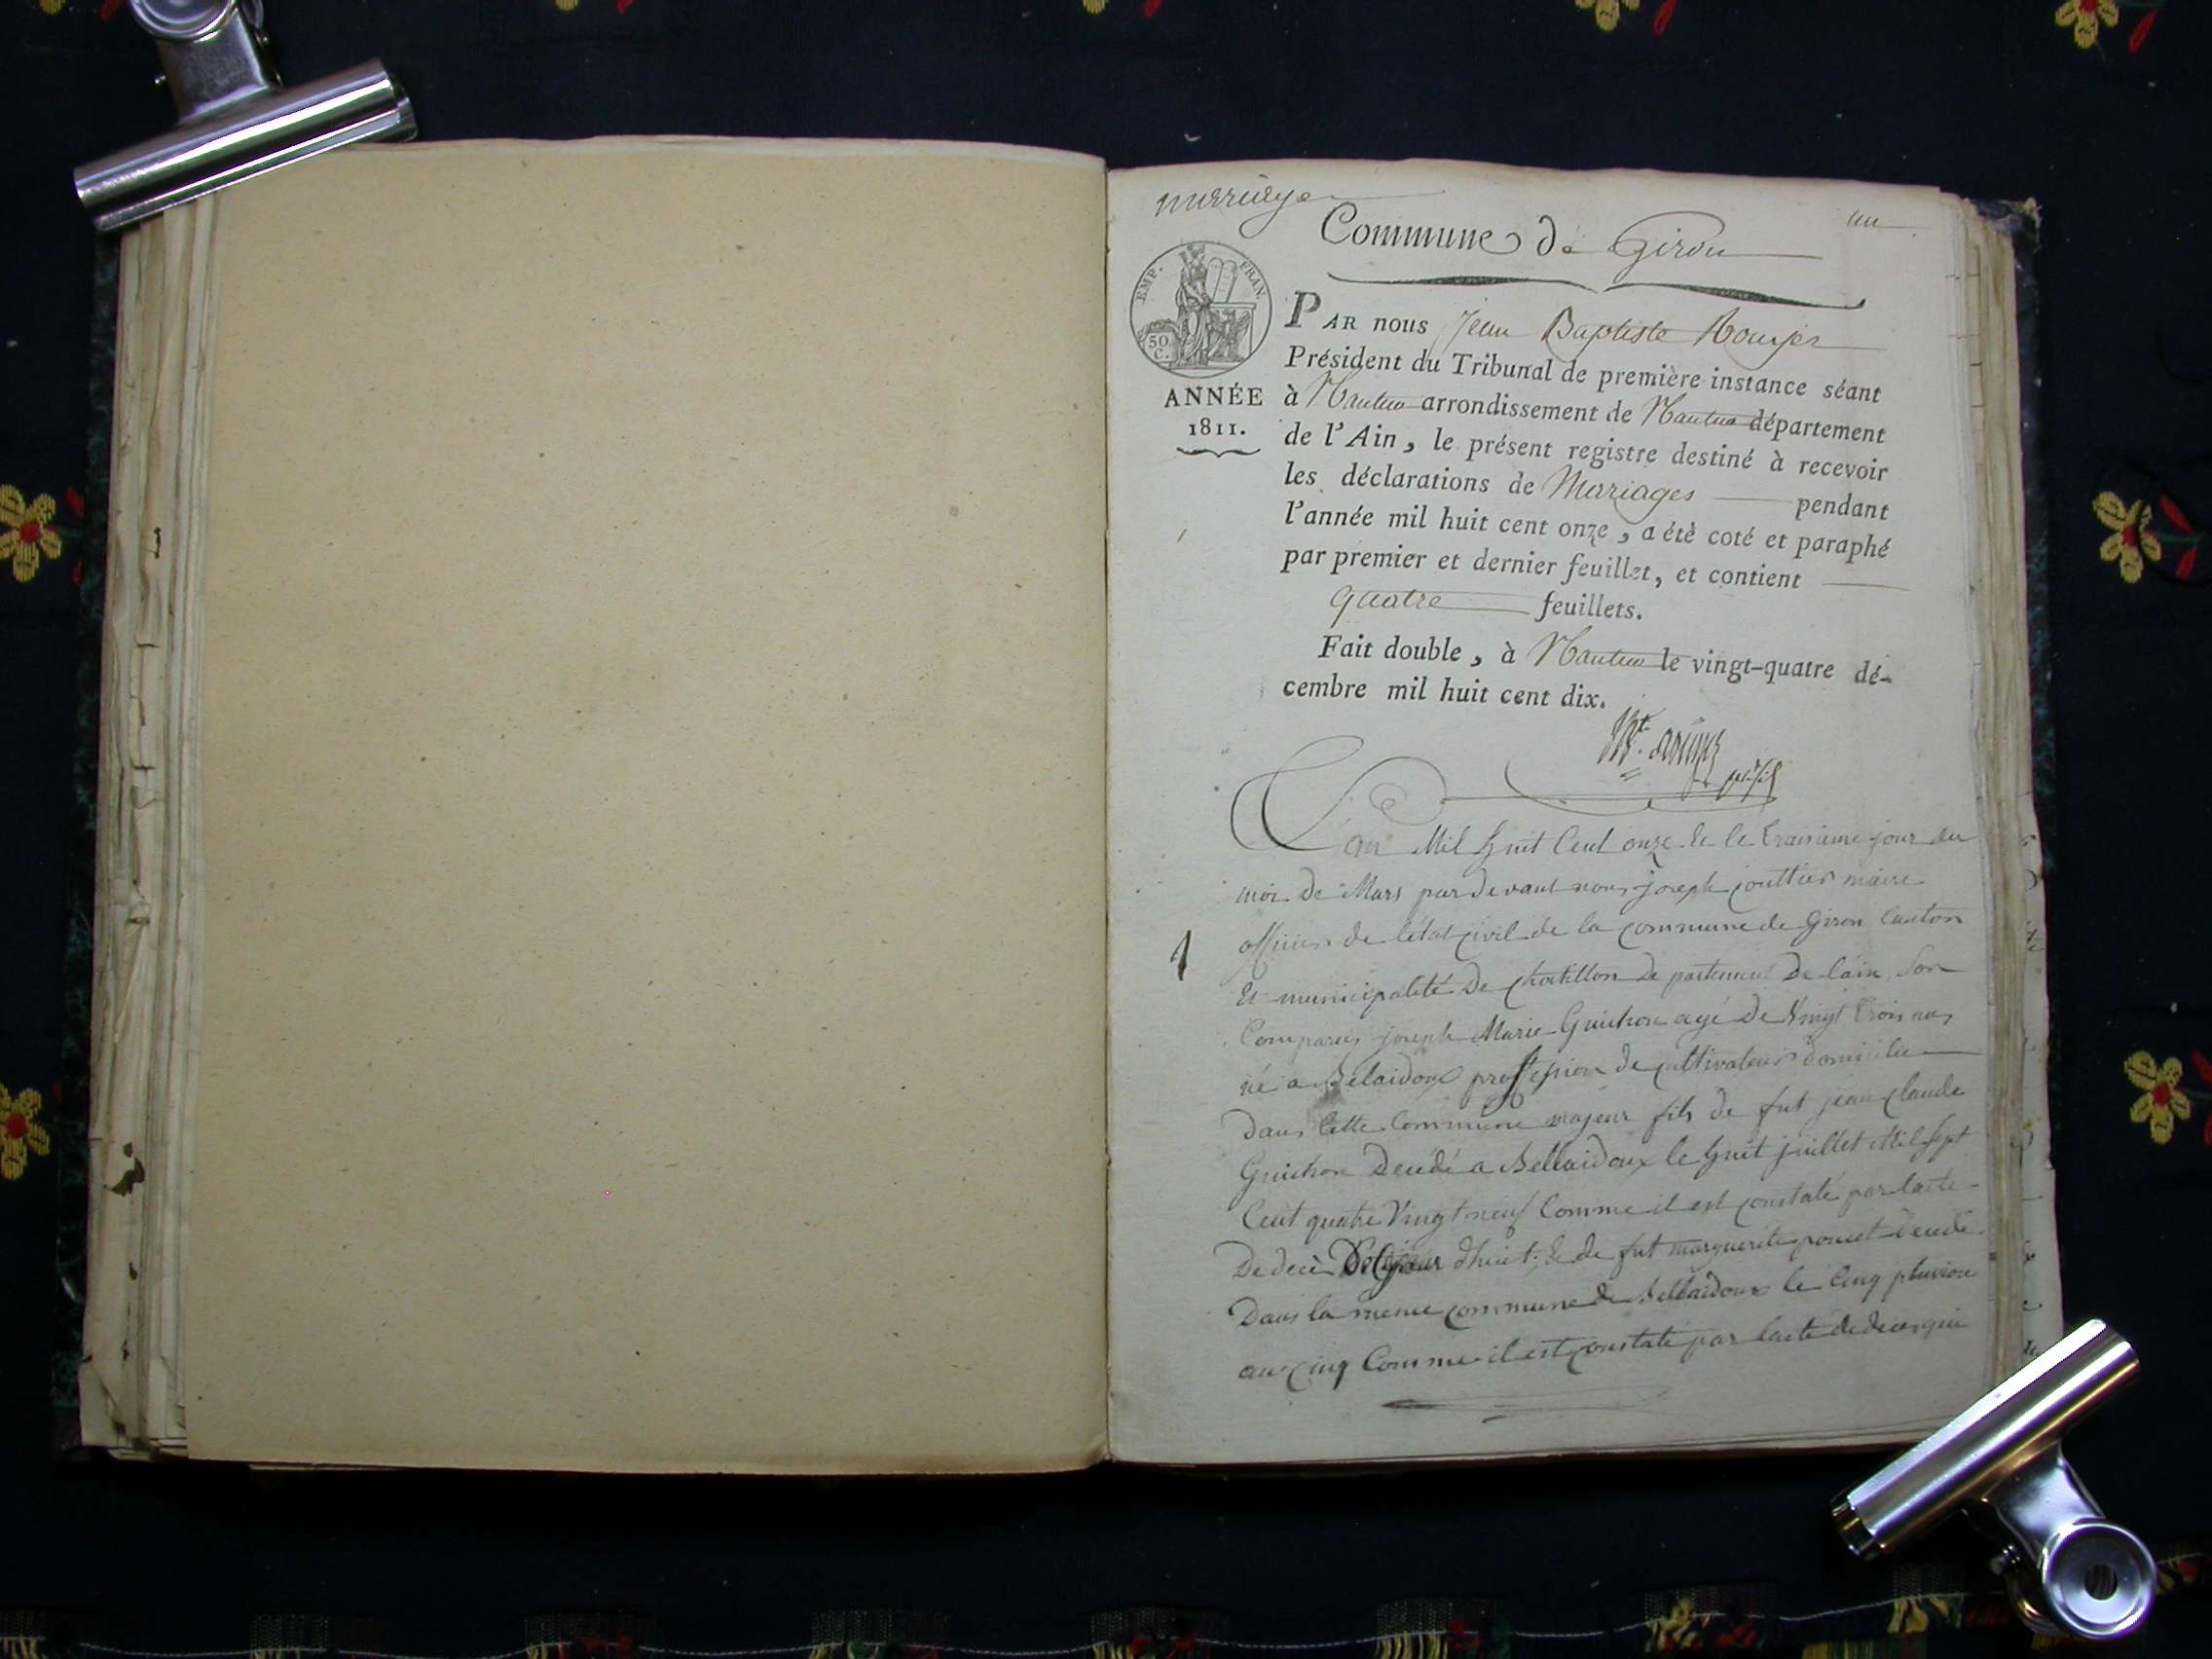 mariage
un
Commune de Giron
EMP. FRAN.
50
C.
PAR nous Jean Baptiste Rouyer
Président du Tribunal de première instance séant
ANNÉE
1811.
à Nantua arrondissement de Nantua département
de l'Ain, le présent registre destiné à recevoir
les déclarations de Mariages pendant
l'année mil huit cent onze, a été coté et paraphé
par premier et dernier feuillet, et contient
quatre feuillets.
Fait double, à Nantua le vingt-quatre dé-
cembre mil huit cent dix.
L'an Mil huit Cent onze & le traisieme jour du
moi de Mars par devant nous joseph jouttier maire
officier de l'état civil de la commune de Giron Canton
1
Et municipalité de Chatillon departement de l'ain Son
Comparus joseph Marie Guichon agé de Vingt trois ans
né a Belaidoux proffession de cultivateur domicilie
dans cette Commune majeur fils de fut jean claude
Guichon Decedé a Bellaidoux le huit juillet Mil Sept
Cent quatre Vingt neuf Comme il est constaté par lacte
De decè & de fut marguerite poncet decedé
Dans la meme commune de Bellaidoux le Cinq pluviose
an Cinq Comme il est constaté par lacte de deces qui